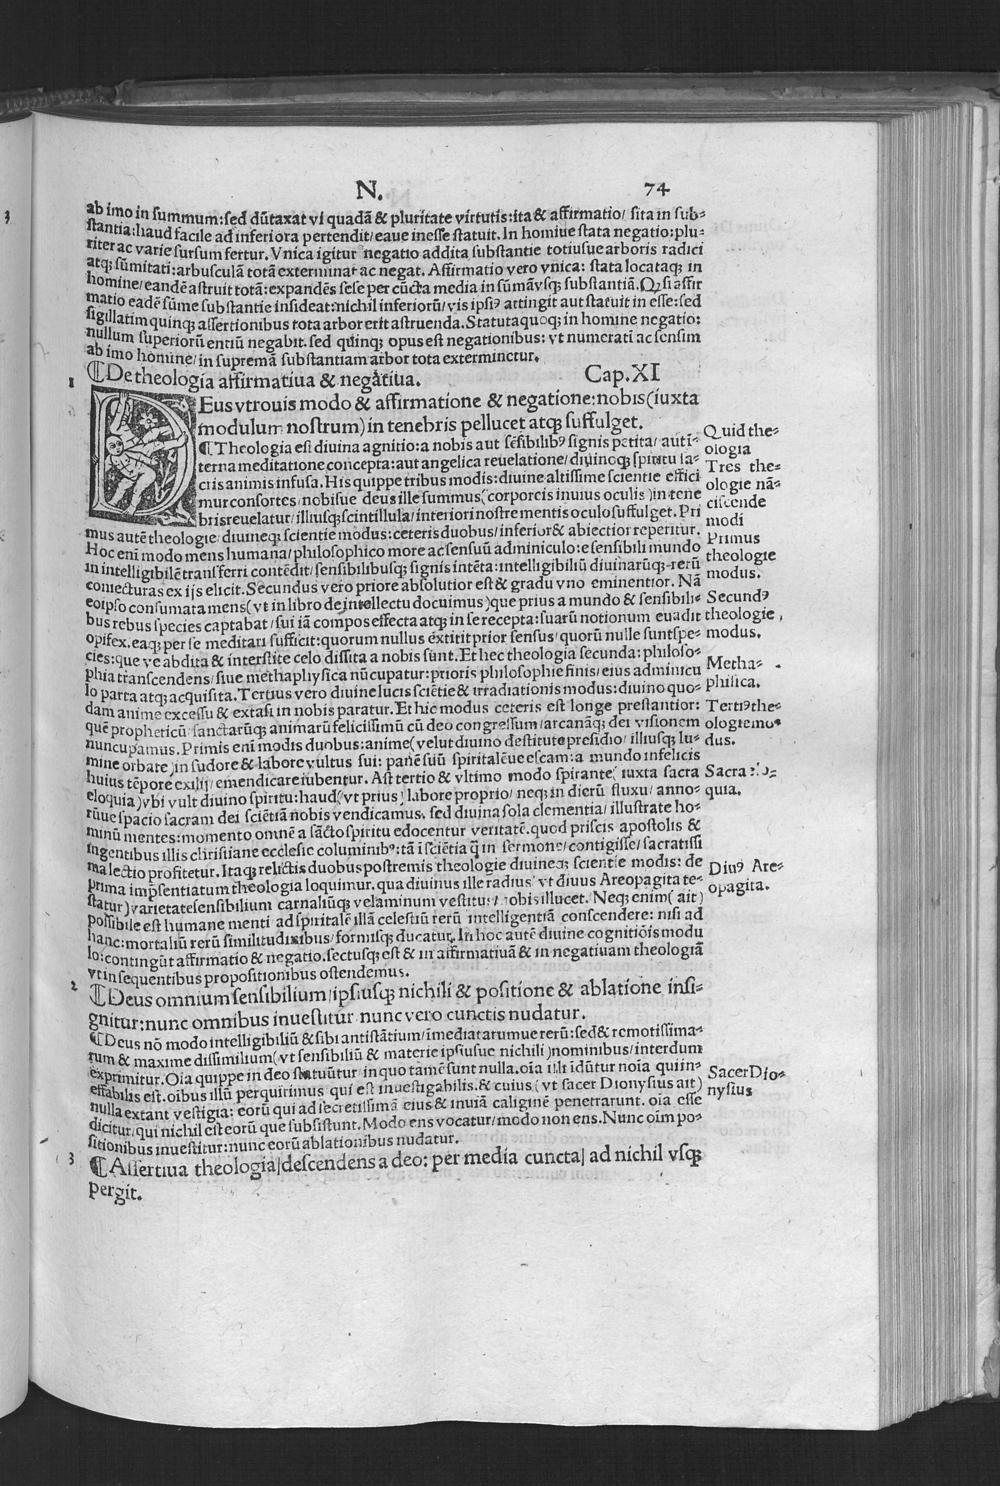 N. 74
ab imo in summum: sed dūtaxat vi quadā & pluritate virtutis: ita & affirmatio/ sita in sub-
stantia: haud facile ad inferiora pertendit/ eaue inesse statuit. In homiue stata negatio: plu-
riter ac varie sursum fertur. Vnica igitur negatio addita substantie totiusue arboris radici
atq; sūmitati: arbusculā totā exterminat ac negat. Affirmatio vero vnica: stata locataq; in
homine/ eandē astruit totā: expandēs sese per cūcta media in sūmāvsq; substantiā. Qz si affir
matio eadē sūme substantie insideat: nichil inferiorū/ vis ipsiꝰ attingit aut statuit in esse: sed
sigillatim quinq; assertionibus tota arbor erit astruenda. Statuta quoq; in homine negatio:
nullum superiorū entiū negabit. sed quinq; opus est negationibus: vt numerati ac sensim
ab imo homine/ in supremā substantiam arbor tota exterminetur.
1 ¶ De theologia affirmatiua & negatiua. Cap. XI
DEus vtrouis modo & affirmatione & negatione: nobis (iuxta
modulum nostrum) in tenebris pellucet atq; suffulget.
¶ Theologia est diuina agnitio: a nobis aut sēsibilibꝰ signis petita/ aut ī-
terna meditatione concepta: aut angelica reuelatione/ diuinoq; spiritu sa-
cris animis infusa. His quippe tribus modis: diuine altissime scientie effici
mur consortes/ nobisue deus ille summus (corporeis inuius oculis) in tene
bris reuelatur/ illiusq; scintillula/ interiori nostre mentis oculo suffulget. Pri
mus autē theologie/ diuineq; scientie modus: ceteris duobus/ inferior & abiectior reperitur.
Hoc enī modo mens humana/ philosophico more ac sensuū adminiculo: e sensibili mundo
in intelligibilē transferri contēdit/ sensibilibusq; signis intēta: intelligibiliū diuinarūq; rerū
coniecturas ex ijs elicit. Secundus vero priore absolutior est & gradu vno eminentior. Nā
eoipso consumata mens (vt in libro de intellectu docuimus) que prius a mundo & sensibili-
bus rebus species captabat/ sui iā compos effecta atq; in se recepta: suarū notionum euadit
opifex. eaq; per se meditari sufficit: quorum nullus extitit prior sensus/ quorū nulle sunt spe-
cies: que ve abdita & interstite celo dissita a nobis sunt. Et hec theologia secunda: philoso-
phia transcendens/ siue methaphysica nūcupatur: prioris philosophie finis/ eius adminicu
lo parta atq; acquisita. Tertius vero diuine lucis sciētie & irradiationis modus: diuino quo-
dam anime excessu & extasi in nobis paratur. Et hic modus ceteris est longe prestantior:
quē propheticū/ sanctarūq; animarū felicissimū cū deo congressum/ arcanāq; dei visionem
nuncupamus. Primis enī modis duobus: anime (velut diuino destitute presidio/ illiusq; lu-
mine orbate) in sudore & labore vultus sui: panē suū spiritalēue escam: a mundo infelicis
huius tēpore exilij/ emendicare iubentur. Ast tertio & vltimo modo spirante (iuxta sacra
eloquia) vbi vult diuino spiritu: haud (vt prius) labore proprio/ neq; in dierū fluxu/ anno-
rūue spacio sacram dei sciētiā nobis vendicamus. sed diuina sola clementia/ illustrate ho-
minū mentes: momento omnē a sācto spiritu edocentur veritatē. quod priscis apostolis &
ingentibus illis christiane ecclesie columinibꝰ: tā ī sciētia q̄ in sermone/ contigisse/ sacratissi
ma lectio profitetur. Itaq; relictis duobus postremis theologie diuineq; scientie modis: de
prima imp̄sentiatum theologia loquimur. qua diuinus ille radius (vt diuus Areopagita te-
statur) varietate sensibilium carnaliūq; velaminum vestitus/ nobis illucet. Neq; enim (ait)
possibile est humane menti ad spiritalē illā celestiū rerū intelligentiā conscendere: nisi ad
hanc: mortaliū rerū similitudinibus/ formisq; ducatur. In hoc autē diuine cognitiōis modu
lo: contingūt affirmatio & negatio. sectusq; est & in affirmatiuā & in negatiuam theologiā
vt in sequentibus propositionibus ostendemus.
2 ¶ Deus omnium sensibilium/ ipsiusq; nichili & positione & ablatione insi-
gnitur: nunc omnibus inuestitur nunc vero cunctis nudatur.
¶ Deus nō modo intelligibiliū & sibi antistātium/ imediatarumue rerū: sed & remotissima-
rum & maxime dissimilium (vt sensibiliū & materie ipsiusue nichili) nominibus/ interdum
exprimitur. Oīa quippe in deo statuūtur/ in quo tamē sunt nulla. oīa illi idūtur noīa qui in-
effabilis est. oībus illū perquirimus qui est inuestigabilis. & cuius (vt sacer Dionysius ait)
nulla extant vestigia: eorū qui ad secretissimā eius & inuiā caliginē penetrarunt. oīa esse
dicitur/ qui nichil est eorū que subsistunt. Modo ens vocatur/ modo non ens. Nunc oīm po-
sitionibus inuestitur: nunc eorū ablationibus nudatur.
3 ¶ Assertiua theologia/ descendens a deo: per media cuncta/ ad nichil vsq;
pergit.
Quid the-
ologia
Tres the-
ologie nā-
ciscende
modi
Primus
theologie
modus.
Secundꝰ
theologie
modus.
Metha-
phisica.
Tertiꝰ the-
ologie mo-
dus.
Sacra elo-
quia.
Diuꝰ Are-
opagita.
Sacer Dio-
nysius